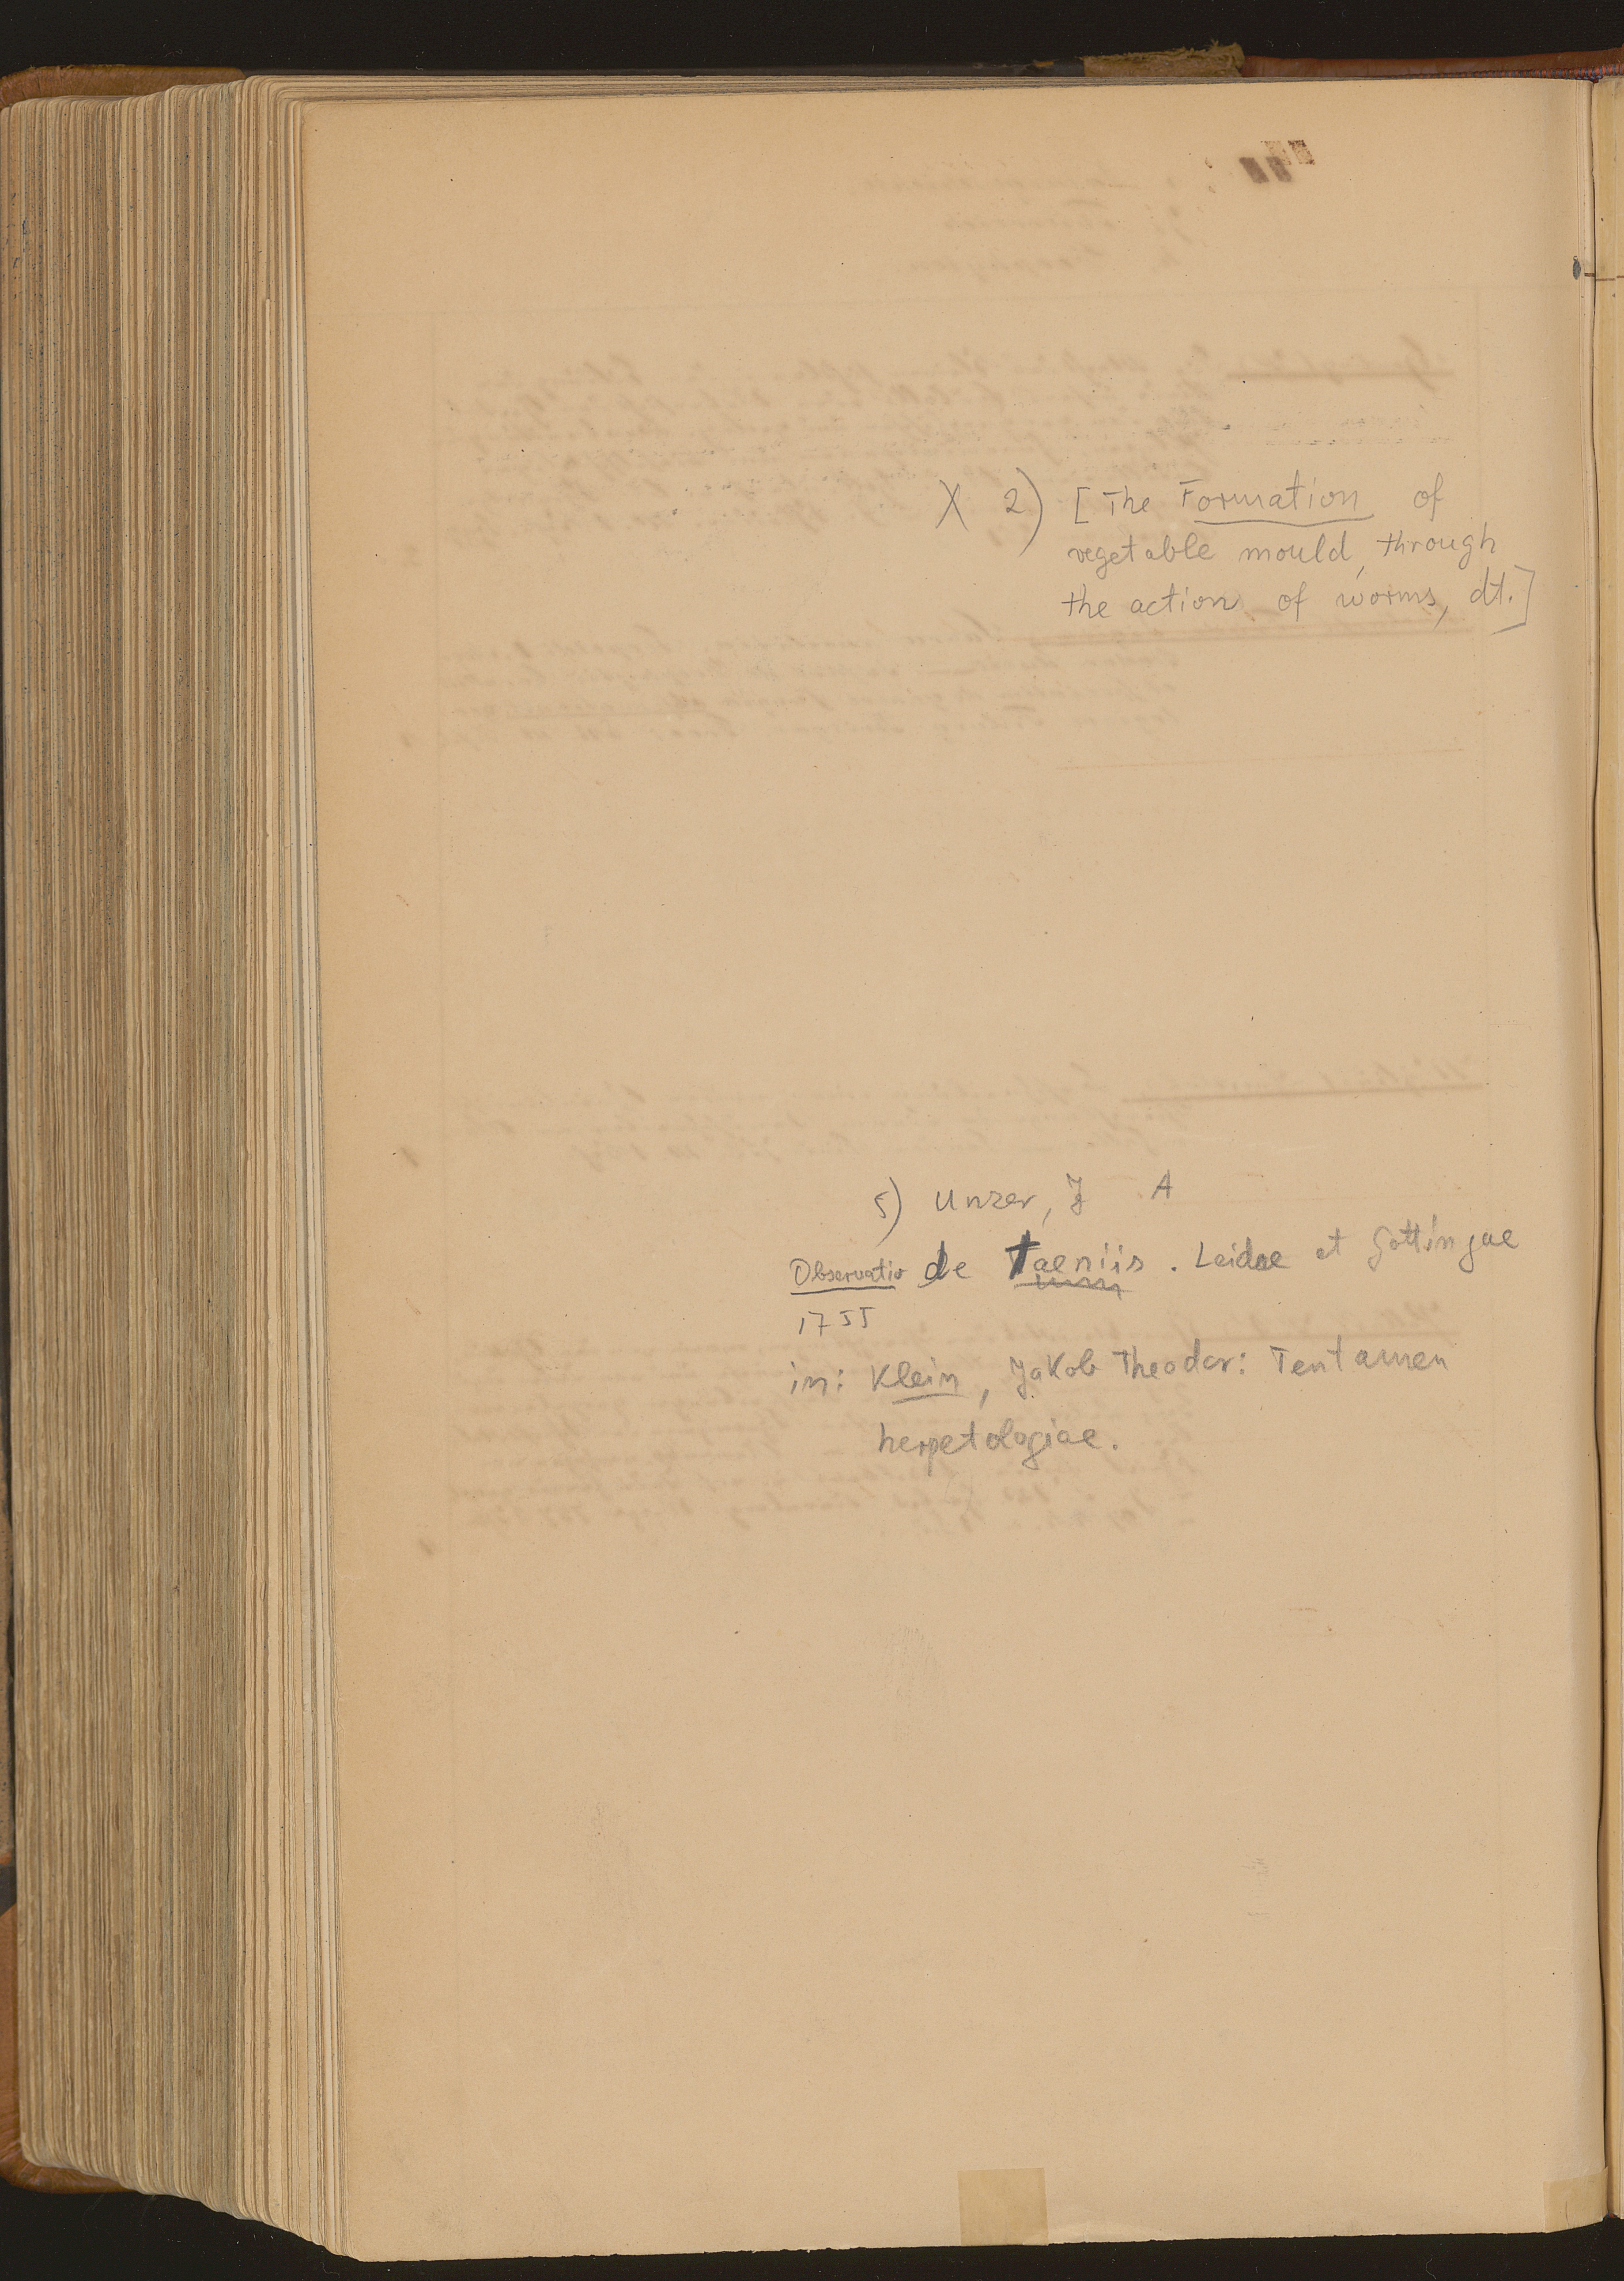 X 2) [The Formation of
vegetable mould, through
the action of worms, dt.]
5) Unzer, J A
Observatio de Taeniis. Leidae et Gottingae
1755
in: Klein, Jakob Theodor: Tentamen
herpetologiae.